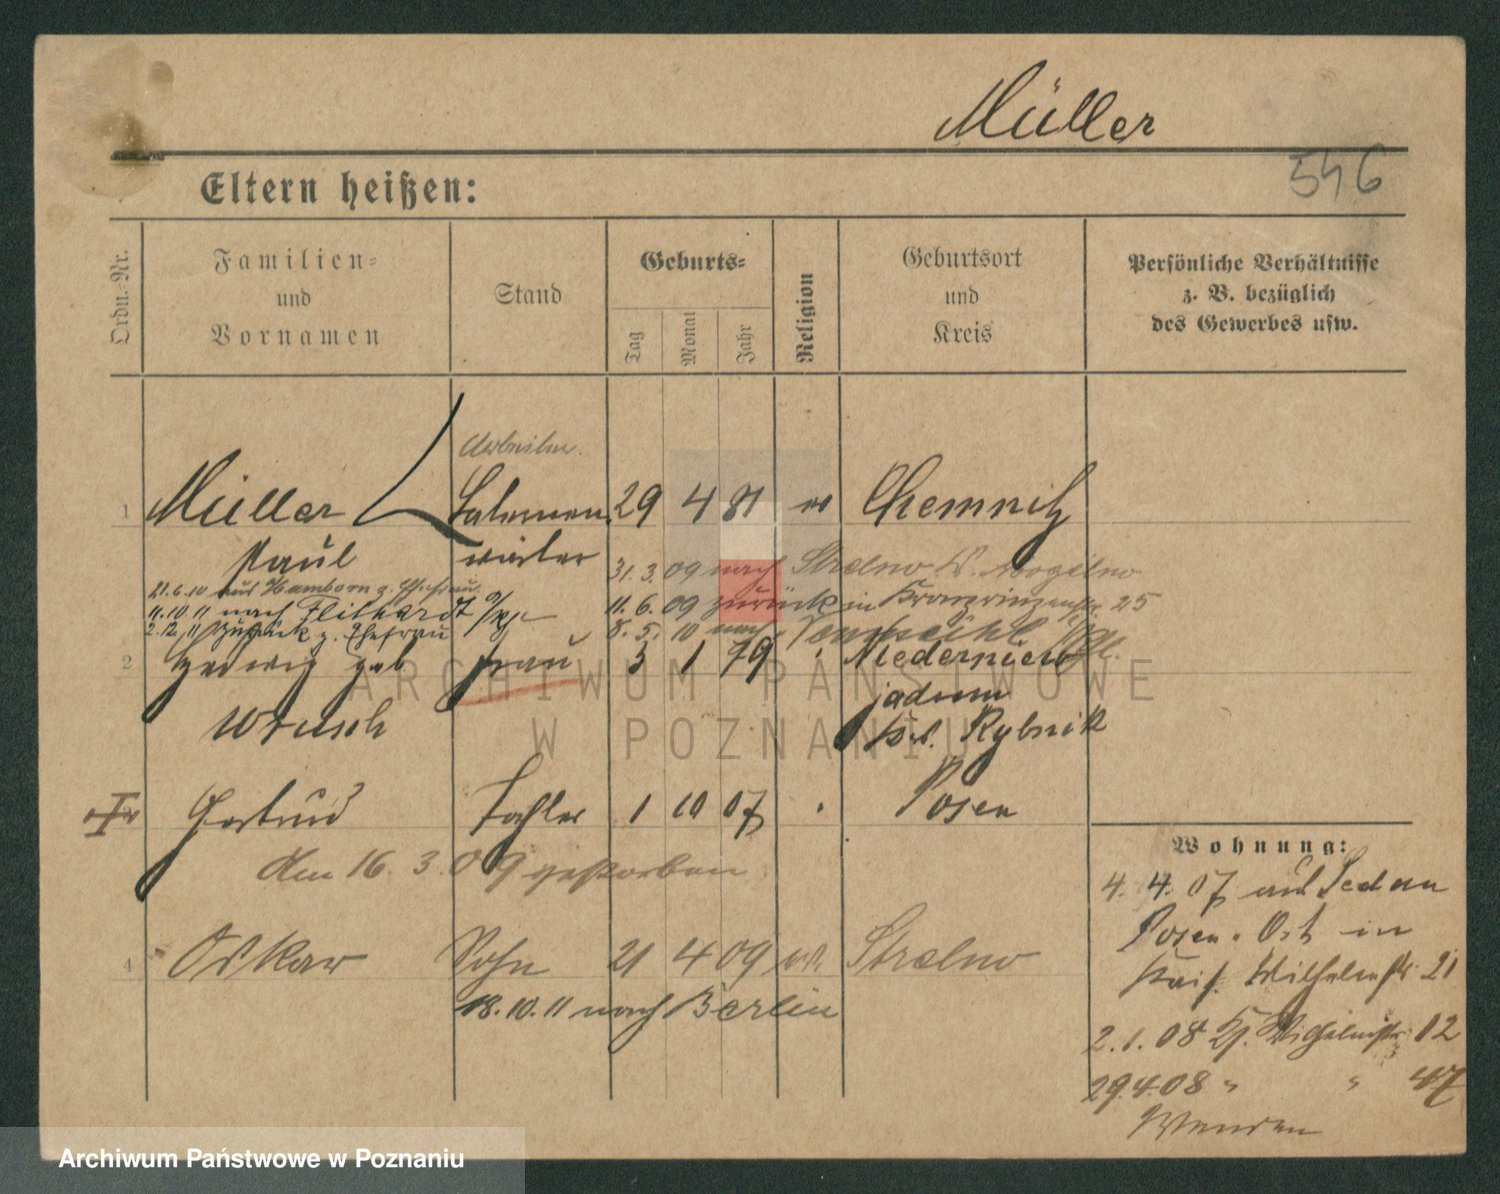 Müller
546
Eltern heißen:
Ordn.-Nr.
Familien- und Vornamen
Stand
Geburts-
Tag
Monat
Jahr
Religion
Geburtsort und Kreis
Persönliche Verhältnisse z. B. bezüglich des Gewerbes usw.
1 Müller 29 4 81 ev Chemnitz
Paul wärter
31. 3. 09 nach Strelno K. Mogilno
21.6.10 auf Hamborn z. Ehefrau
11. 6. 09 zurück in Kronprinzenstr. 25
11.10.11 nach
8. 5. 10
2.12.11 zurück z. Ehefrau
2 Hedwig geb Frau 3 1 79 Niederniew
jadom
Wrusch Kr. Rybnik
Gertrud Tochter 1 10 07 Posen
den 16. 3. 09 gestorben
4 Oskar Sohn 21 4 09 ev. Strelno
18. 10. 11 nach Berlin
Wohnung:
4. 4. 07 aus Sedan
Posen-Ost in
Kais. Wilhelmstr. 21
2. 1. 08 Ks. Wilhelmstr. 12
29.4.08 " " 47
ARCHIWUM PAŃSTWOWE
W POZNANIU
Archiwum Państwowe w Poznaniu